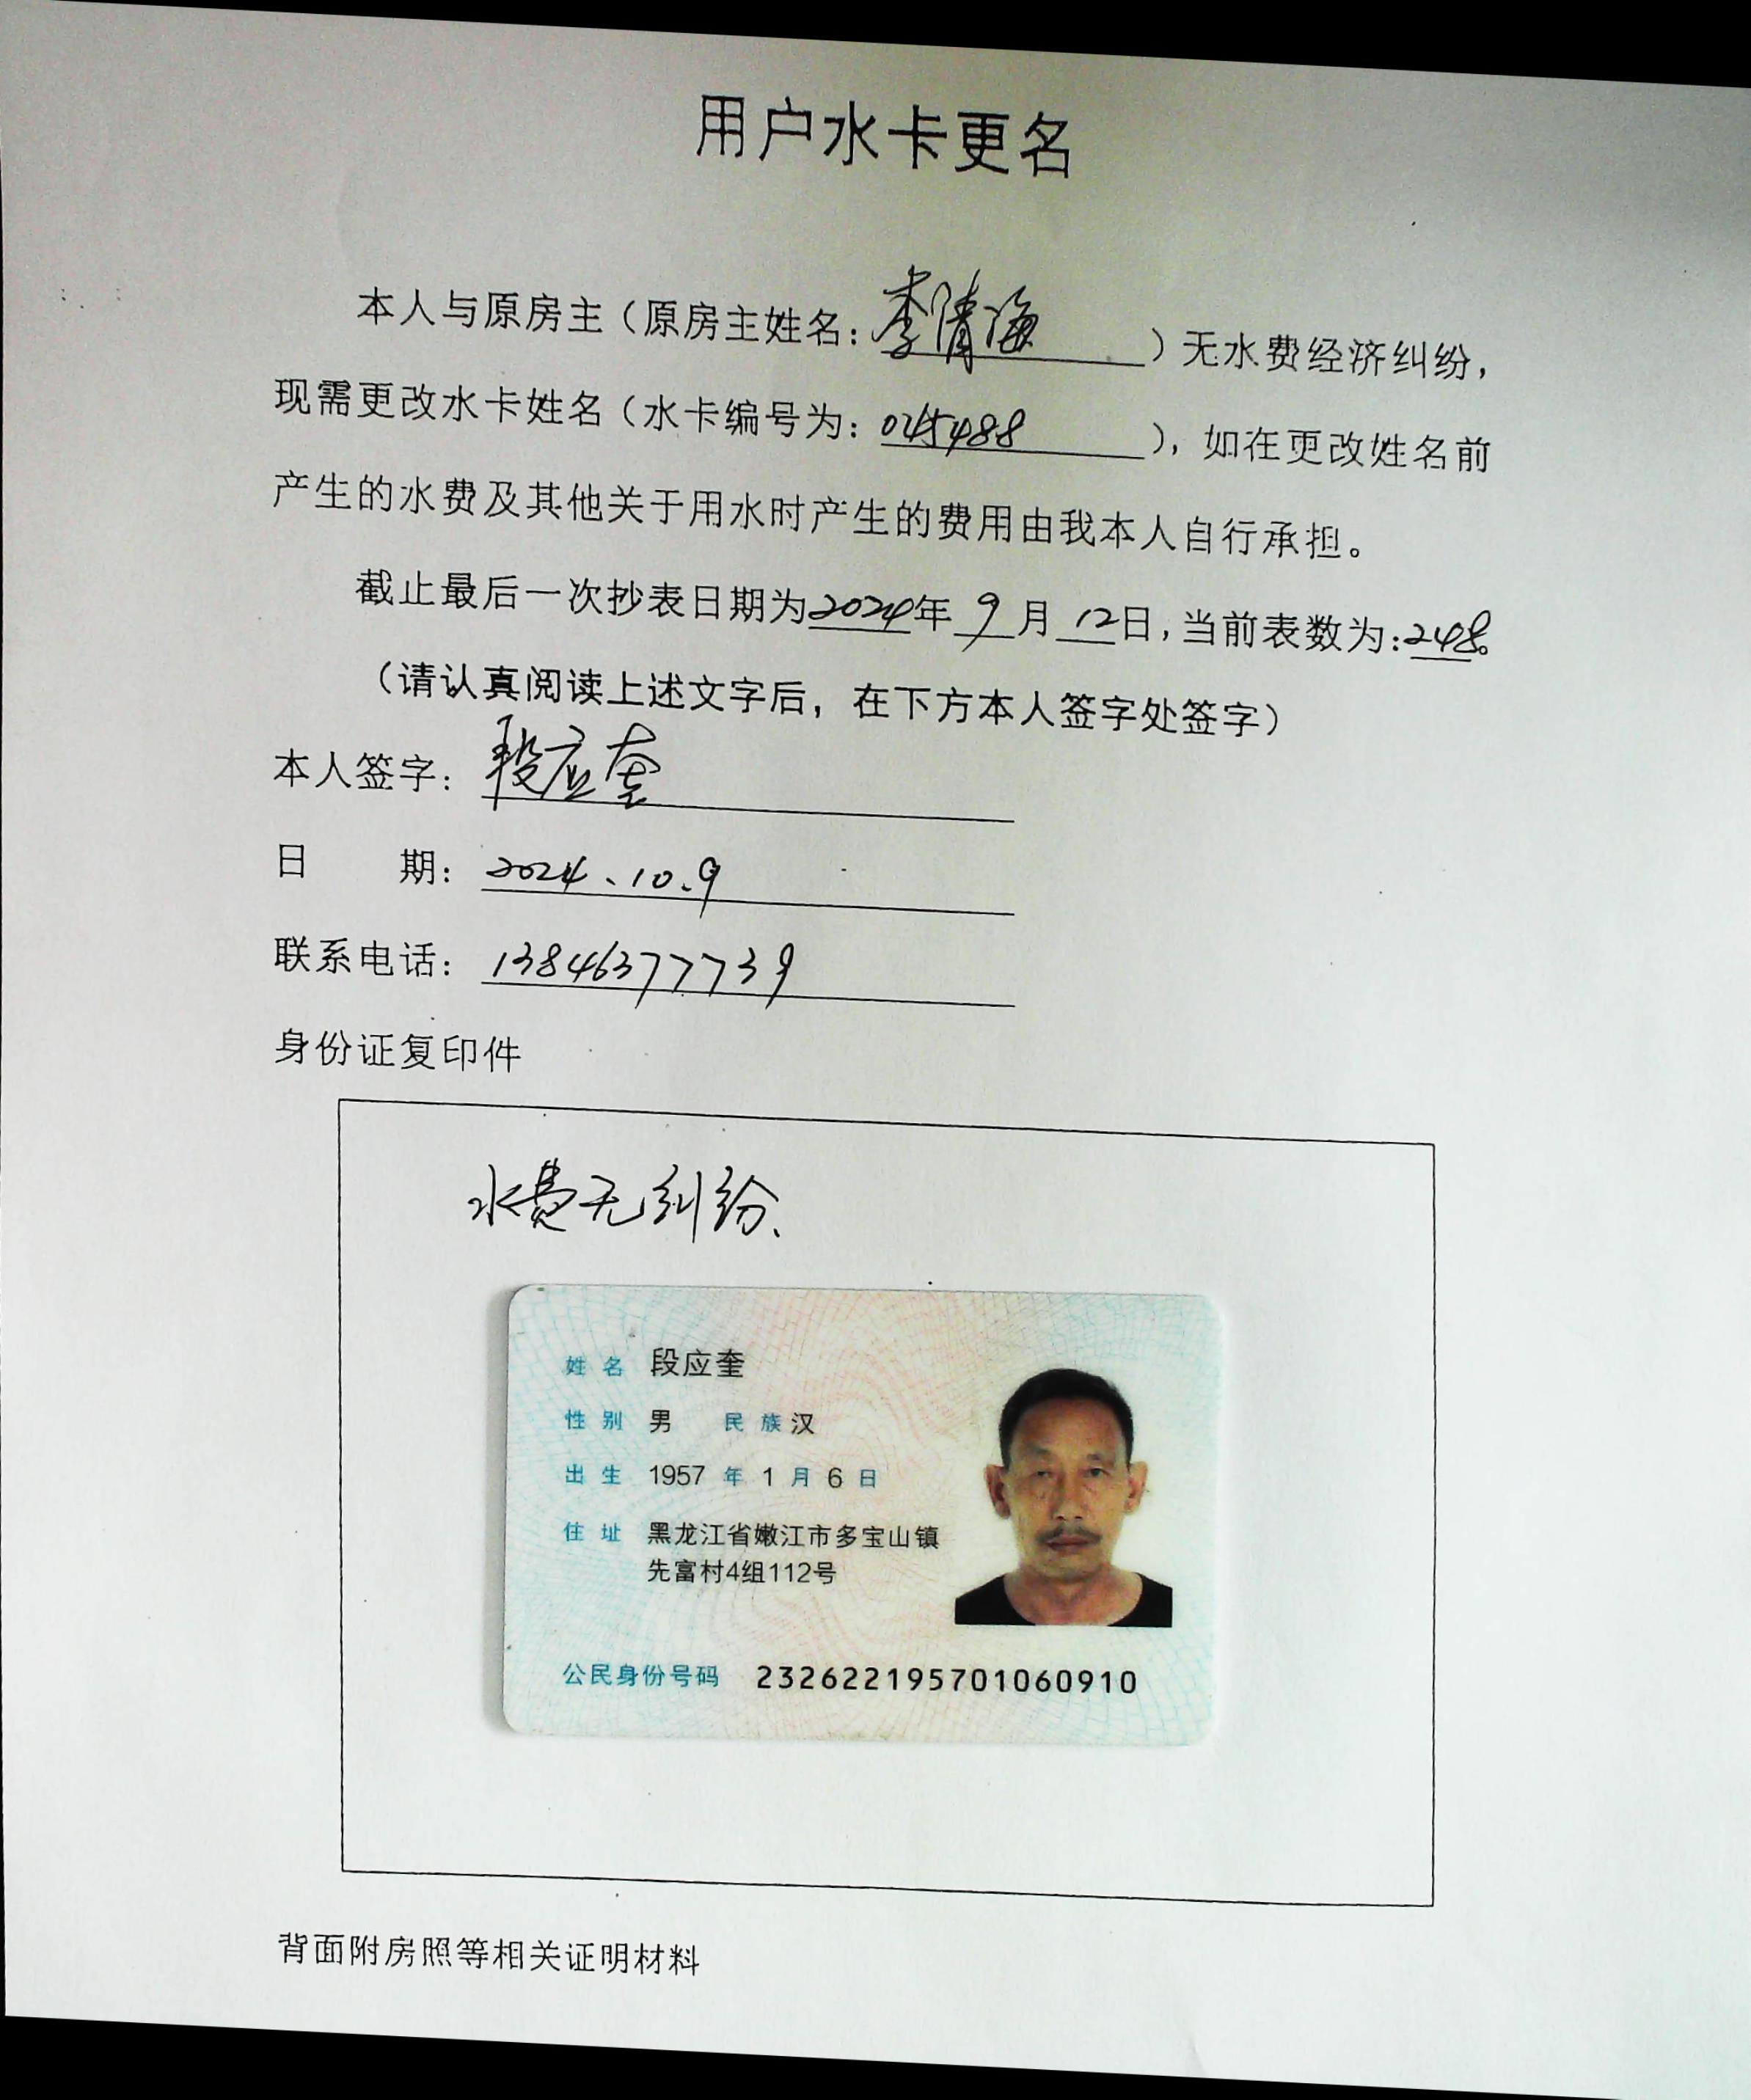 用户水卡更名
本人与原房主（原房主姓名：李清海）无水费经济纠纷，
现需更改水卡姓名（水卡编号为：045488），如在更改姓名前
产生的水费及其他关于用水时产生的费用由我本人自行承担。
截止最后一次抄表日期为2024年9月12日，当前表数为：248。
（请认真阅读上述文字后，在下方本人签字处签字）
本人签字：段应奎
日 期：2024、10、9
联系电话：13846377739
身份证复印件
水费无纠纷、
姓名 段应奎
性别 男 民族 汉
出生 1957 年 1 月 6 日
住址 黑龙江省嫩江市多宝山镇
先富村4组112号
公民身份号码 232622195701060910
背面附房照等相关证明材料